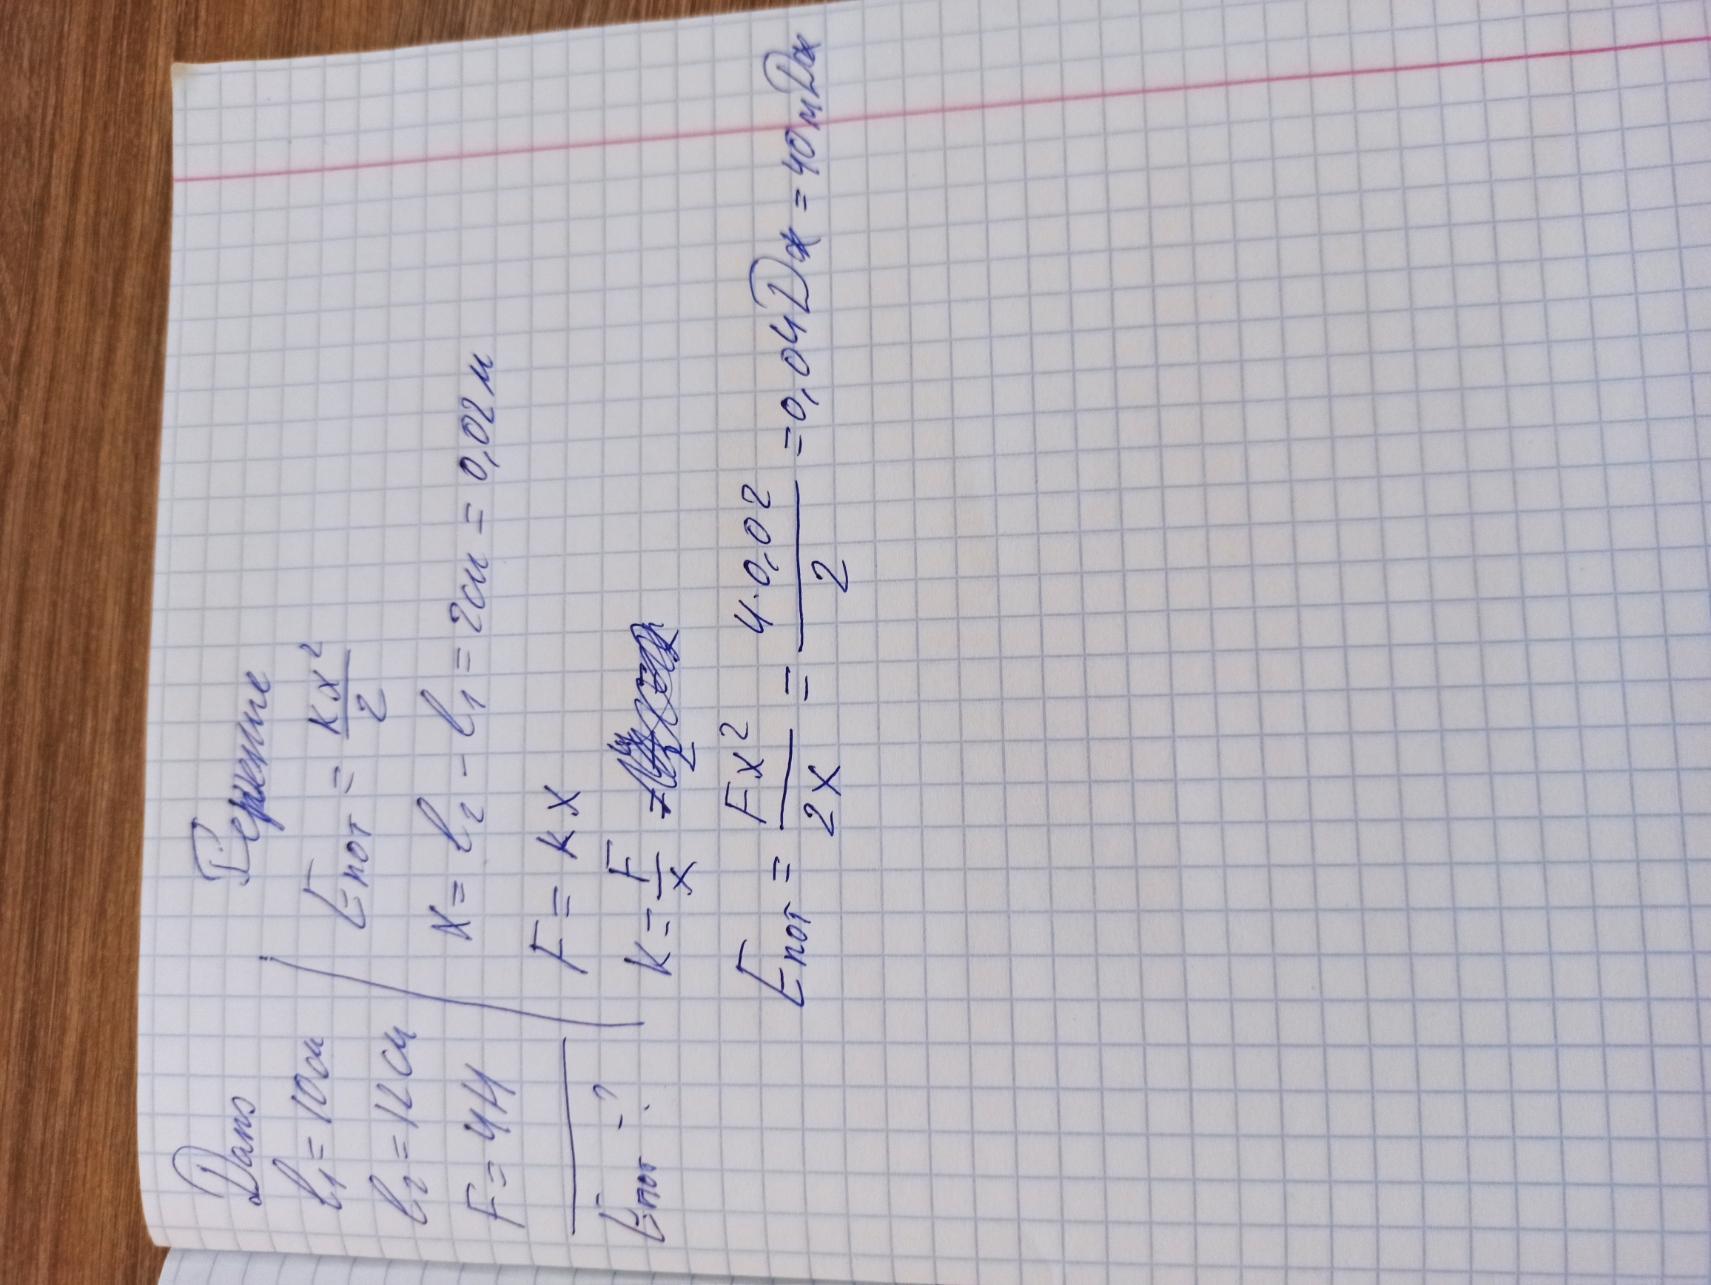 Дано
l₁ = 10см
l₂ = 12см
F = 4Н
Eпот - ?
Решение
Eпот = kx²/2
x = l₂ - l₁ = 2см = 0,02м
F = kx
k = F/x
Eпот = Fx²/2x = 4·0,02/2 = 0,04Дж = 40мДж